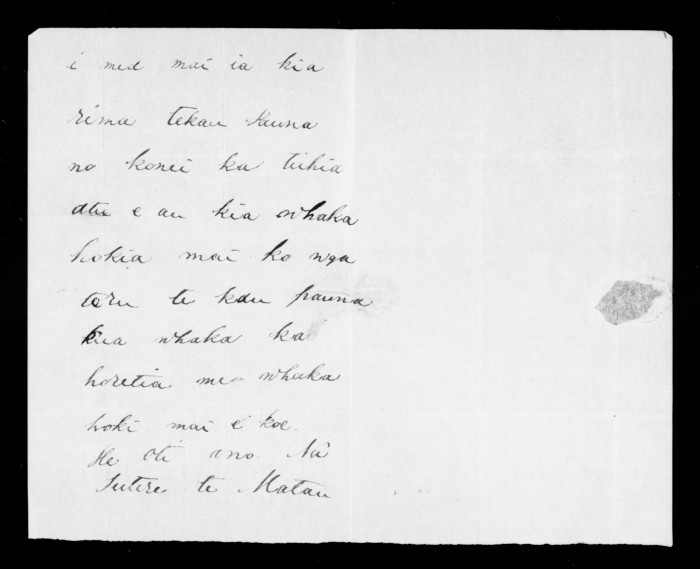 i mea mai ia kia
rima tekau pauna
no konei ka tuhia
atu e au kia whaka
hokia mai ko nga
toru te kau pauna
kua whaka ka
horetia me whaka
hoki mai e koe.
He oti ano. Na
te Matau